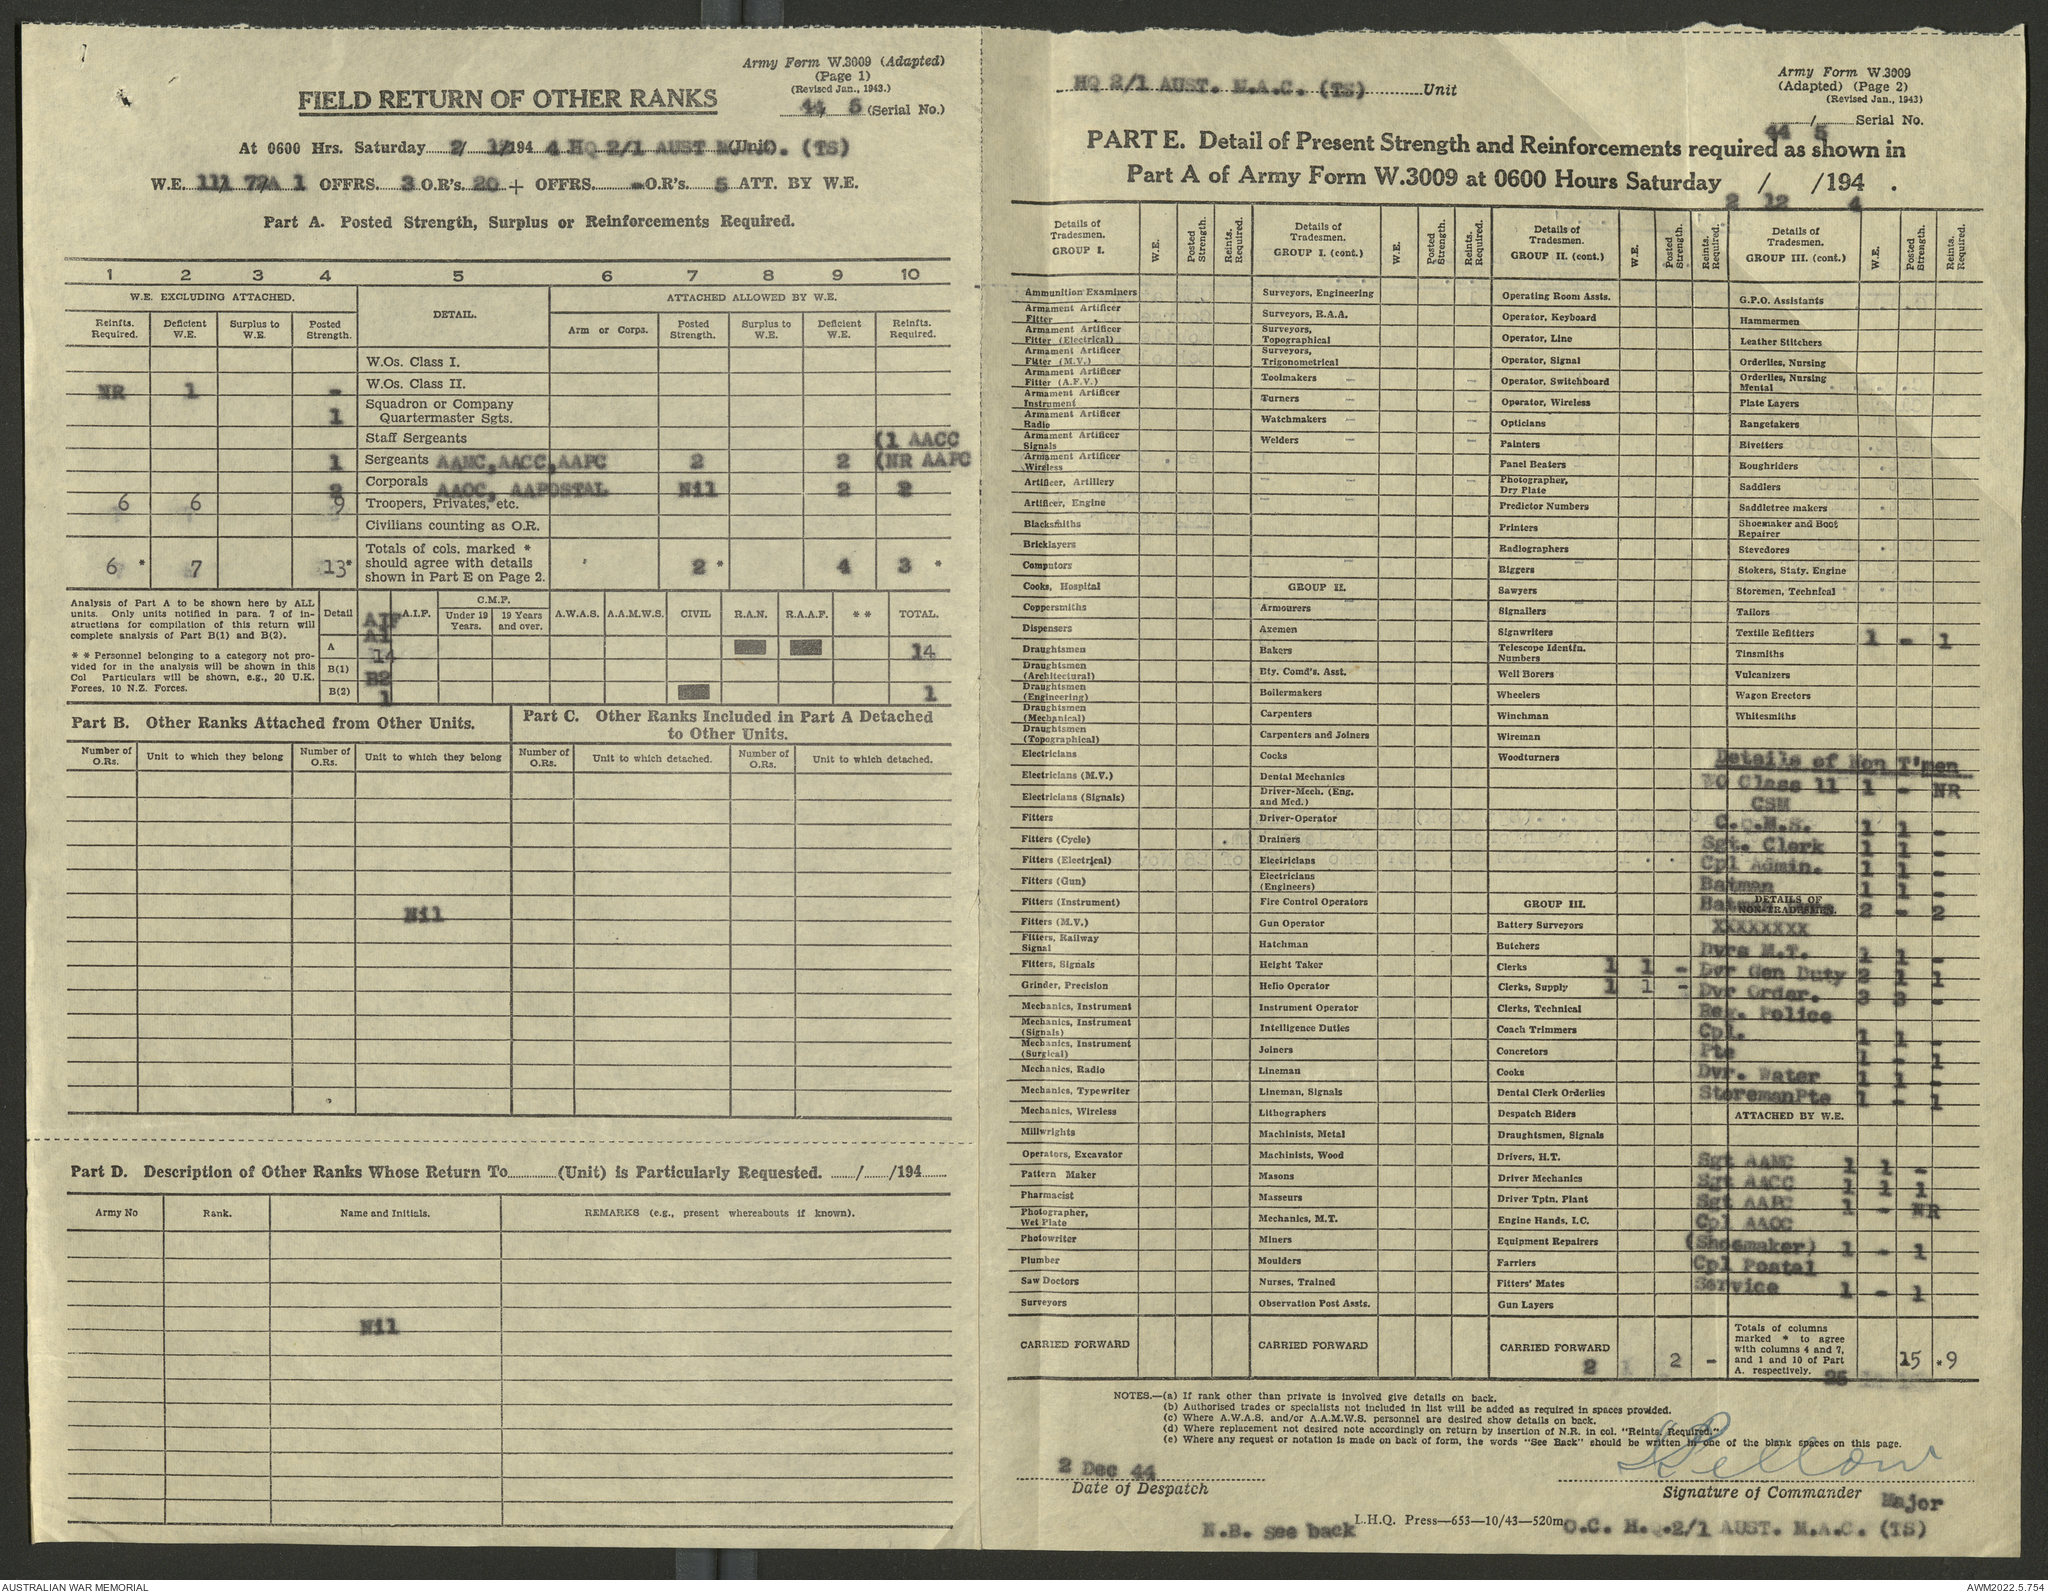 Army Form W.3009 (Adapted)
(Page 1)
(Revised Jan., 1943.)
44 5 (Serial No.)
FIELD RETURN OF OTHER RANKS
At 0600 Hrs. Saturday 2/ 12/194 4 HQ 2/1 AUST (Unit). (TS)
W.E. 111/ 1 OFFRS. 3 O.R's. 20 + OFFRS. - O.R's. 5 ATT. BY W.E.
Part A. Posted Strength, Surplus or Reinforcements Required.
1 2 3 4 5 6 7 8 9 10
W.E. EXCLUDING ATTACHED. DETAIL. ATTACHED ALLOWED BY W.E.
Reinfts. Required. Deficient W.E. Surplus to W.E. Posted Strength. Arm or Corps. Posted Strength. Surplus to W.E. Deficient W.E. Reinfts. Required.
W.Os. Class I.
NR 1 - W.Os. Class II.
1 Squadron or Company Quartermaster Sgts.
Staff Sergeants (1 AACC
1 Sergeants AAMC,AACC,AAPC 2 2 (NR AAPC
2 Corporals AAOC, AAPOSTAL Nil 2 2
6 6 9 Troopers, Privates, etc.
Civilians counting as O.R.
6 * 7 13* Totals of cols. marked * should agree with details shown in Part E on Page 2. 2 * 4 3 *
Analysis of Part A to be shown here by ALL units. Only units notified in para. 7 of instructions for compilation of this return will complete analysis of Part B(1) and B(2).
* * Personnel belonging to a category not provided for in the analysis will be shown in this Col Particulars will be shown, e.g., 20 U.K. Forces, 10 N.Z. Forces.
Detail AIF A.I.F. C.M.F. Under 19 Years. 19 Years and over. A.W.A.S. A.A.M.W.S. CIVIL R.A.N. R.A.A.F. * * TOTAL.
A1
A 14 14
B(1) B2
B(2) 1 1
Part B. Other Ranks Attached from Other Units.
Part C. Other Ranks Included in Part A Detached to Other Units.
Number of O.Rs. Unit to which they belong Number of O.Rs. Unit to which they belong Number of O.Rs. Unit to which detached. Number of O.Rs. Unit to which detached.
Nil
Part D. Description of Other Ranks Whose Return To (Unit) is Particularly Requested. / /194
Army No Rank. Name and Initials. REMARKS (e.g., present whereabouts if known).
Nil
HQ 2/1 AUST. M.A.C. (TS) Unit
Army Form W.3009
(Adapted) (Page 2)
(Revised Jan., 1943)
44 / 5 Serial No.
PART E. Detail of Present Strength and Reinforcements required as shown in
Part A of Army Form W.3009 at 0600 Hours Saturday / /194 .
2 12 4
Details of Tradesmen. GROUP I. W.E. Posted Strength. Reints. Required.
Ammunition Examiners
Armament Artificer Fitter
Armament Artificer Fitter (Electrical)
Armament Artificer Fitter (M.V.)
Armament Artificer Fitter (A.F.V.)
Armament Artificer Instrument
Armament Artificer Radio
Armament Artificer Signals
Armament Artificer Wireless
Artificer, Artillery
Artificer, Engine
Blacksmiths
Bricklayers
Computors
Cooks, Hospital
Coppersmiths
Dispensers
Draughtsmen
Draughtsmen (Architectural)
Draughtsmen (Engineering)
Draughtsmen (Mechanical)
Draughtsmen (Topographical)
Electricians
Electricians (M.V.)
Electricians (Signals)
Fitters
Fitters (Cycle)
Fitters (Electrical)
Fitters (Gun)
Fitters (Instrument)
Fitters (M.V.)
Fitters, Railway Signal
Fitters, Signals
Grinder, Precision
Mechanics, Instrument
Mechanics, Instrument (Signals)
Mechanics, Instrument (Surgical)
Mechanics, Radio
Mechanics, Typewriter
Mechanics, Wireless
Millwrights
Operators, Excavator
Pattern Maker
Pharmacist
Photographer, Wet Plate
Photowriter
Plumber
Saw Doctors
Surveyors
CARRIED FORWARD
Details of Tradesmen. GROUP I. (cont.) W.E. Posted Strength. Reints. Required.
Surveyors, Engineering
Surveyors, R.A.A.
Surveyors, Topographical
Surveyors, Trigonometrical
Toolmakers
Turners
Watchmakers
Welders
GROUP II.
Armourers
Axemen
Bakers
Bty. Comd's. Asst.
Boilermakers
Carpenters
Carpenters and Joiners
Cooks
Dental Mechanics
Driver-Mech. (Eng. and Med.)
Driver-Operator
Drainers
Electricians
Electricians (Engineers)
Fire Control Operators
Gun Operator
Hatchman
Height Taker
Helio Operator
Instrument Operator
Intelligence Duties
Joiners
Lineman
Lineman, Signals
Lithographers
Machinists, Metal
Machinists, Wood
Masons
Masseurs
Mechanics, M.T.
Miners
Moulders
Nurses, Trained
Observation Post Assts.
CARRIED FORWARD
Details of Tradesmen. GROUP II. (cont.) W.E. Posted Strength. Reints. Required.
Operating Room Assts.
Operator, Keyboard
Operator, Line
Operator, Signal
Operator, Switchboard
Operator, Wireless
Opticians
Painters
Panel Beaters
Photographer, Dry Plate
Predictor Numbers
Printers
Radiographers
Riggers
Sawyers
Signallers
Signwriters
Telescope Identfn. Numbers
Well Borers
Wheelers
Winchman
Wireman
Woodturners
GROUP III.
Battery Surveyors
Butchers
Clerks 1 1 -
Clerks, Supply 1 1 -
Clerks, Technical
Coach Trimmers
Concretors
Cooks
Dental Clerk Orderlies
Despatch Riders
Draughtsmen, Signals
Drivers, H.T.
Driver Mechanics
Driver Tptn. Plant
Engine Hands, I.C.
Equipment Repairers
Farriers
Fitters' Mates
Gun Layers
CARRIED FORWARD 2 2 -
Details of Tradesmen. GROUP III. (cont.) W.E. Posted Strength. Reints. Required.
G.P.O. Assistants
Hammermen
Leather Stitchers
Orderlies, Nursing
Orderlies, Nursing Mental
Plate Layers
Rangetakers
Rivetters
Roughriders
Saddlers
Saddletree makers
Shoemaker and Boot Repairer
Stevedores
Stokers, Staty. Engine
Storemen, Technical
Tailors
Textile Refitters 1 - 1
Tinsmiths
Vulcanizers
Wagon Erectors
Whitesmiths
Details of Non T'men
WO Class 11 1 - NR
CSM
C.Q.M.S. 1 1 -
Sgt. Clerk 1 1 -
Cpl Admin. 1 1 -
Batman 1 1 -
DETAILS OF NON-TRADESMEN.
Batman 2 - 2
XXXXXXXX
Dvrs M.T. 1 1 -
Dvr Gen Duty 2 1 1
Dvr Order. 3 3 -
Reg. Police
Cpl. 1 1 -
Pte 1 - 1
Dvr. Water 1 1 -
StoremanPte 1 - 1
ATTACHED BY W.E.
Sgt AAMC 1 1 -
Sgt AACC 1 1 1
Sgt AAPC 1 - NR
Cpl AAOC
(Shoemaker) 1 - 1
Cpl Postal
Service 1 - 1
Totals of columns marked * to agree with columns 4 and 7, and 1 and 10 of Part A. respectively. 25 15 *9
NOTES.—(a) If rank other than private is involved give details on back.
(b) Authorised trades or specialists not included in list will be added as required in spaces provided.
(c) Where A.W.A.S. and/or A.A.M.W.S. personnel are desired show details on back.
(d) Where replacement not desired note accordingly on return by insertion of N.R. in col. "Reints. Required."
(e) Where any request or notation is made on back of form, the words "See Back" should be written in one of the blank spaces on this page.
2 Dec 44
Date of Despatch
Signature of Commander Major
N.B. see back L.H.Q. Press—653—10/43—520m O.C. H.Q.2/1 AUST. M.A.C. (TS)
AUSTRALIAN WAR MEMORIAL AWM2022.5.754